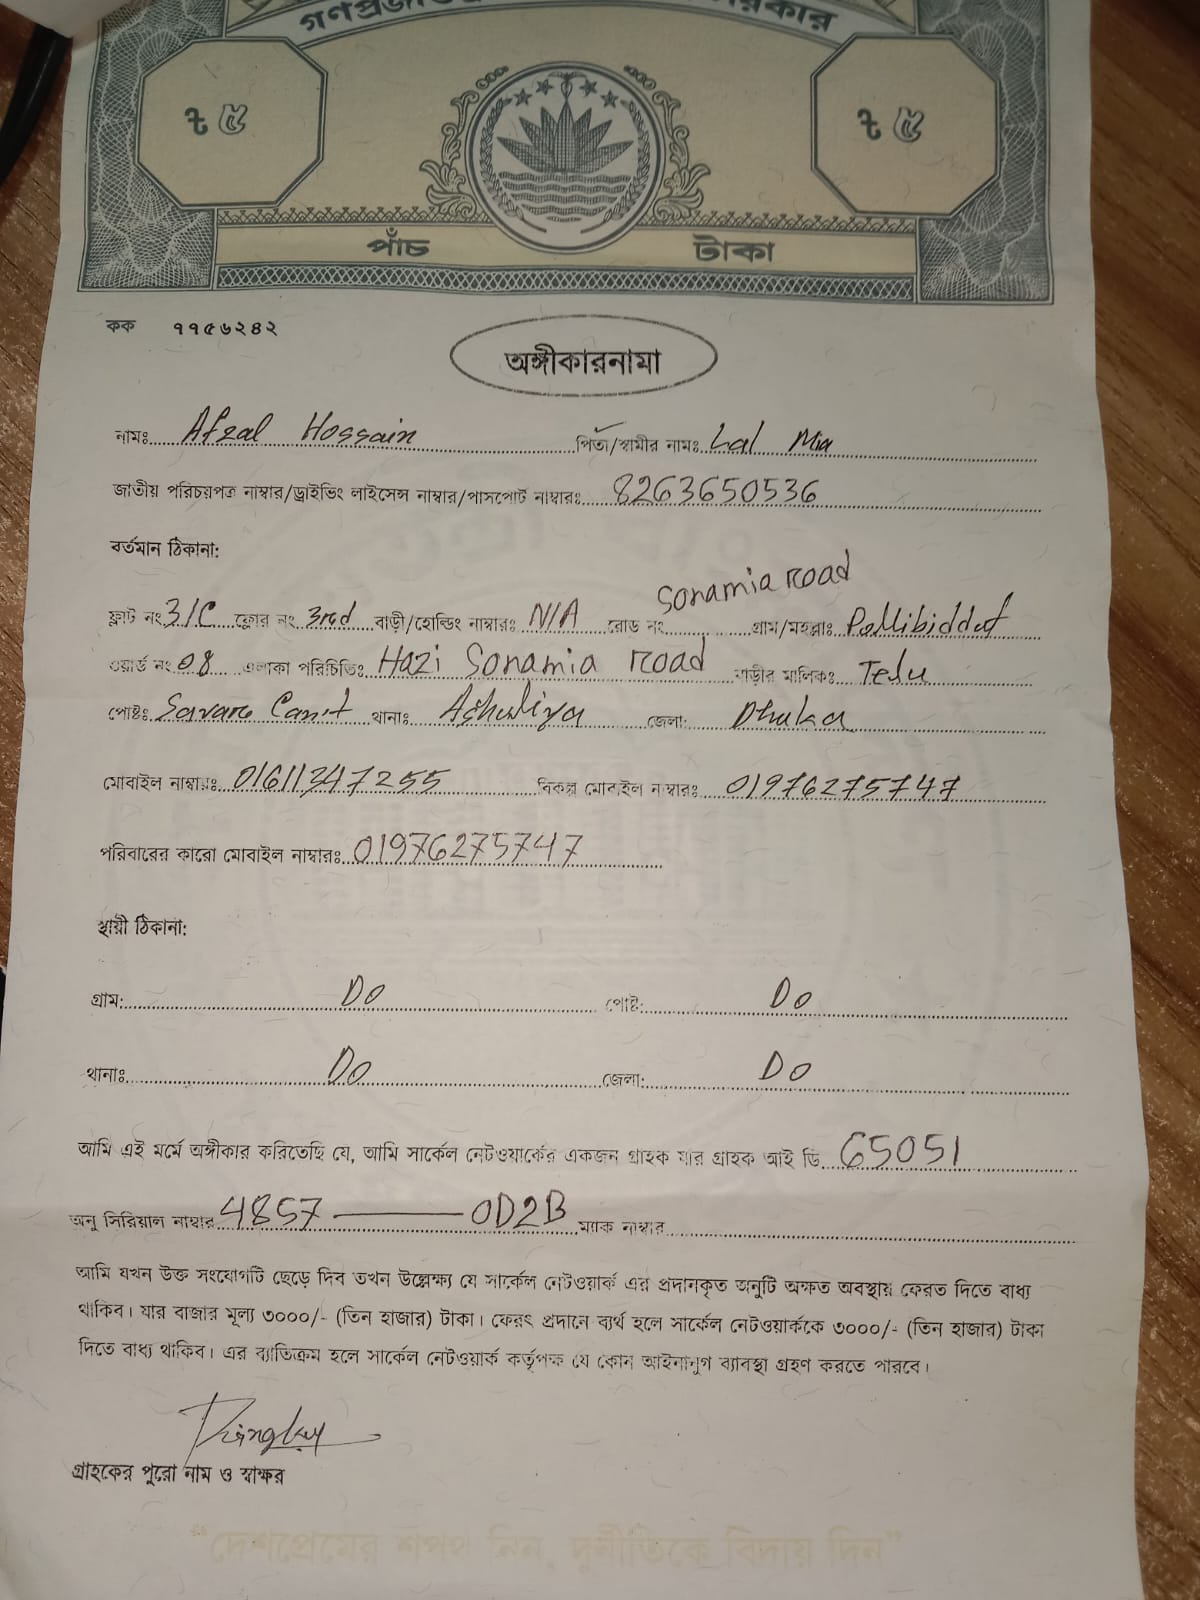 ৳ ৫ ৳ ৫
পাঁচ টাকা
কক ৭৭৫৬২৪২
অঙ্গীকারনামা
নামঃ Afzal Hossain পিতা/স্বামীর নামঃ Lal Mia
জাতীয় পরিচয়পত্র নাম্বার/ড্রাইভিং লাইসেন্স নাম্বার/পাসপোর্ট নাম্বারঃ 8263650536
বর্তমান ঠিকানা:
ফ্লাট নং 3/C ফ্লোর নং 3rd বাড়ী/হোল্ডিং নাম্বারঃ N/A রোড নং Sonamia road গ্রাম/মহল্লাঃ Pollibiddut
ওয়ার্ড নং 08 এলাকা পরিচিতিঃ Hazi Sonamia road বাড়ীর মালিকঃ Telu
পোষ্টঃ Savare Can't থানাঃ Ashuliya জেলা: Dhaka
মোবাইল নাম্বারঃ 01611347255 বিকল্প মোবাইল নাম্বারঃ 01976275747
পরিবারের কারো মোবাইল নাম্বারঃ 01976275747
স্থায়ী ঠিকানা:
গ্রাম: Do পোষ্ট: Do
থানাঃ Do জেলা: Do
আমি এই মর্মে অঙ্গীকার করিতেছি যে, আমি সার্কেল নেটওয়ার্কের একজন গ্রাহক যার গ্রাহক আই ডি 65051
অনু সিরিয়াল নাম্বার 4857 — 0D2B ম্যাক নাম্বার
আমি যখন উক্ত সংযোগটি ছেড়ে দিব তখন উল্লেক্ষ্য যে সার্কেল নেটওয়ার্ক এর প্রদানকৃত অনুটি অক্ষত অবস্থায় ফেরত দিতে বাধ্য
থাকিব। যার বাজার মূল্য ৩০০০/- (তিন হাজার) টাকা। ফেরৎ প্রদানে ব্যর্থ হলে সার্কেল নেটওয়ার্ককে ৩০০০/- (তিন হাজার) টাকা
দিতে বাধ্য থাকিব। এর ব্যতিক্রম হলে সার্কেল নেটওয়ার্ক কর্তৃপক্ষ যে কোন আইনানুগ ব্যাবস্থা গ্রহণ করতে পারবে।
গ্রাহকের পুরো নাম ও স্বাক্ষর
“দেশপ্রেমের শপথ নিন, দুর্নীতিকে বিদায় দিন”